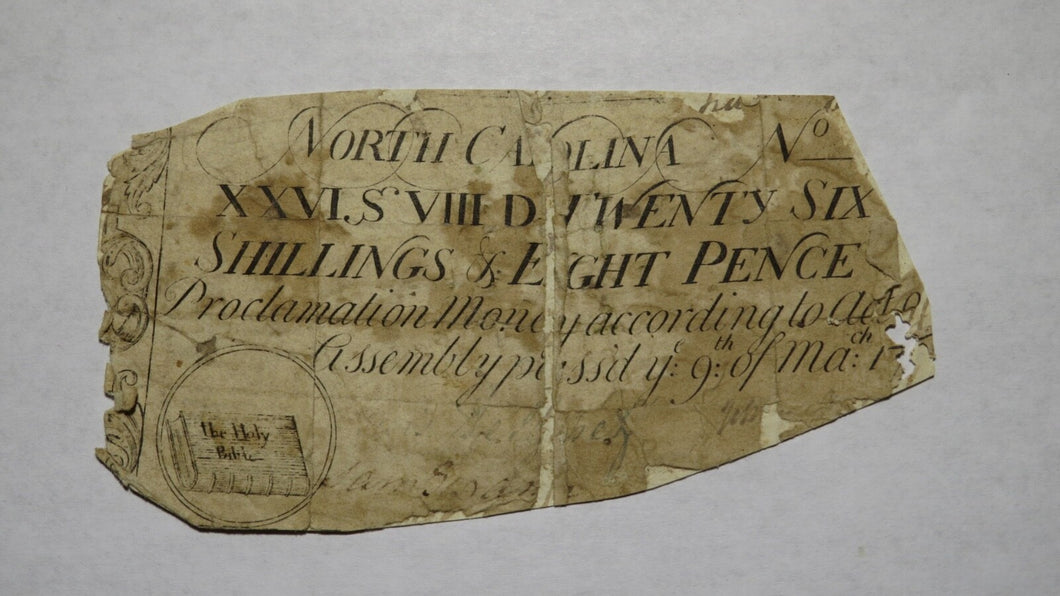 NORTH CAROLINA No
XXVI.S VIII D TWENTY SIX
SHILLINGS & EIGHT PENCE
Proclamation Money according to Act of
Assembly pass'd ye: 9:th of Ma:ch 17
The Holy
Bible